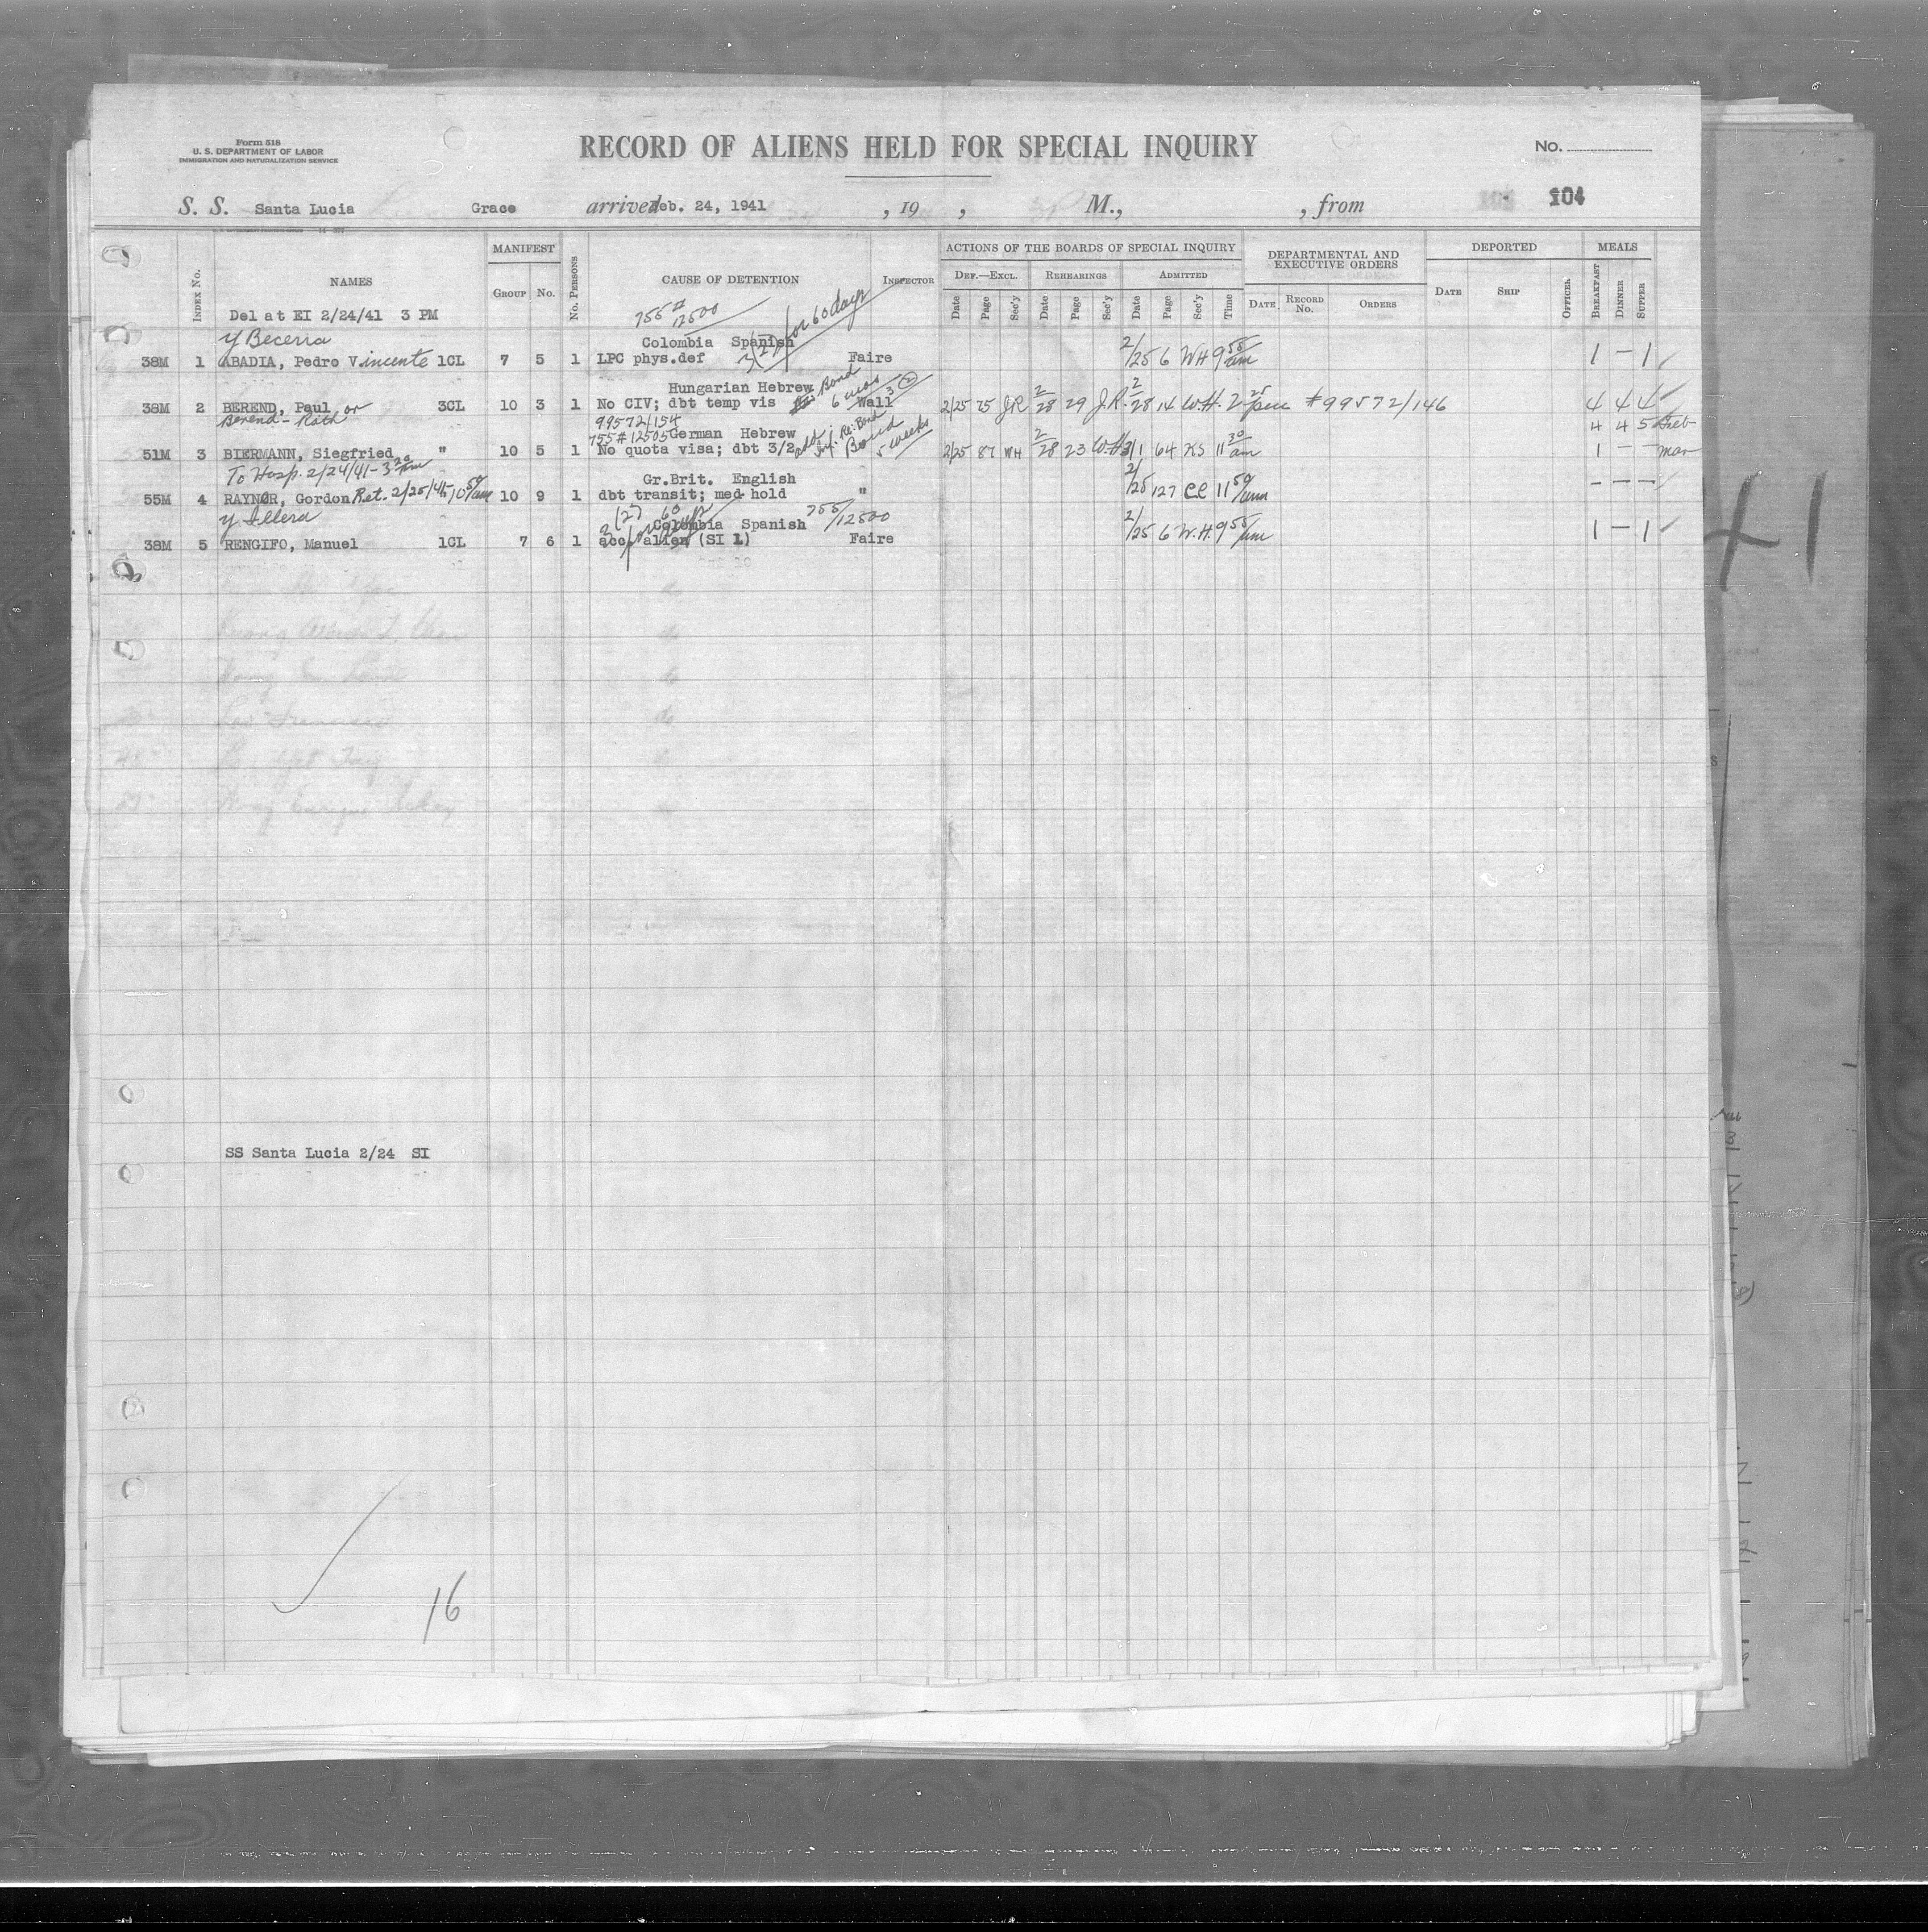 Form 518
U. S. DEPARTMENT OF LABOR
IMMIGRATION AND NATURALIZATION SERVICE
RECORD OF ALIENS HELD FOR SPECIAL INQUIRY
No.
S. S. Santa Lucia Grace arrived Feb. 24, 1941 , 19 , M., , from 104
INDEX No. NAMES MANIFEST GROUP No. No. PERSONS CAUSE OF DETENTION INSPECTOR ACTIONS OF THE BOARDS OF SPECIAL INQUIRY DEPARTMENTAL AND EXECUTIVE ORDERS DEPORTED MEALS
DEF.—EXCL. REHEARINGS ADMITTED
Date Page Sec'y Date Page Sec'y Date Page Sec'y Time DATE RECORD No. ORDERS DATE SHIP OFFICER BREAKFAST DINNER SUPPER
Del at EI 2/24/41 3 PM 755# 12500
y Becerra Colombia Spanish for 60 days
38M 1 ABADIA, Pedro Vincente 1CL 7 5 1 LPC phys.def Faire 2/25 6 WH 9 55 am 1 — 1
Hungarian Hebrew Bond 6 mos
38M 2 BEREND, Paul or 3CL 10 3 1 No CIV; dbt temp vis Wall 2/25 75 JR 2/28 29 J.R. 2/28 14 W.H. 2 25 pm #99572/146 4 4 4
Berend-Roth 99572/154 4 4 5 Feb
755# 12505 German Hebrew Re: Bond Bond 5 weeks
51M 3 BIERMANN, Siegfried " 10 5 1 No quota visa; dbt 3/2 2/25 87 WH 2/28 23 W.H. 3/1 64 KS 11 30 am 1 — — Mar
To Hosp. 2/24/41-3 20 pm Gr.Brit. English
55M 4 RAYNOR, Gordon Ret. 2/25/41-10 50 am 10 9 1 dbt transit; med hold " 2/25 127 CE 11 50 am — — —
y Illera Colombia Spanish 755/12500
38M 5 RENGIFO, Manuel 1CL 7 6 1 acc alien (SI 1) Faire 2/25 6 W.H. 9 55 am 1 — 1
SS Santa Lucia 2/24 SI
16